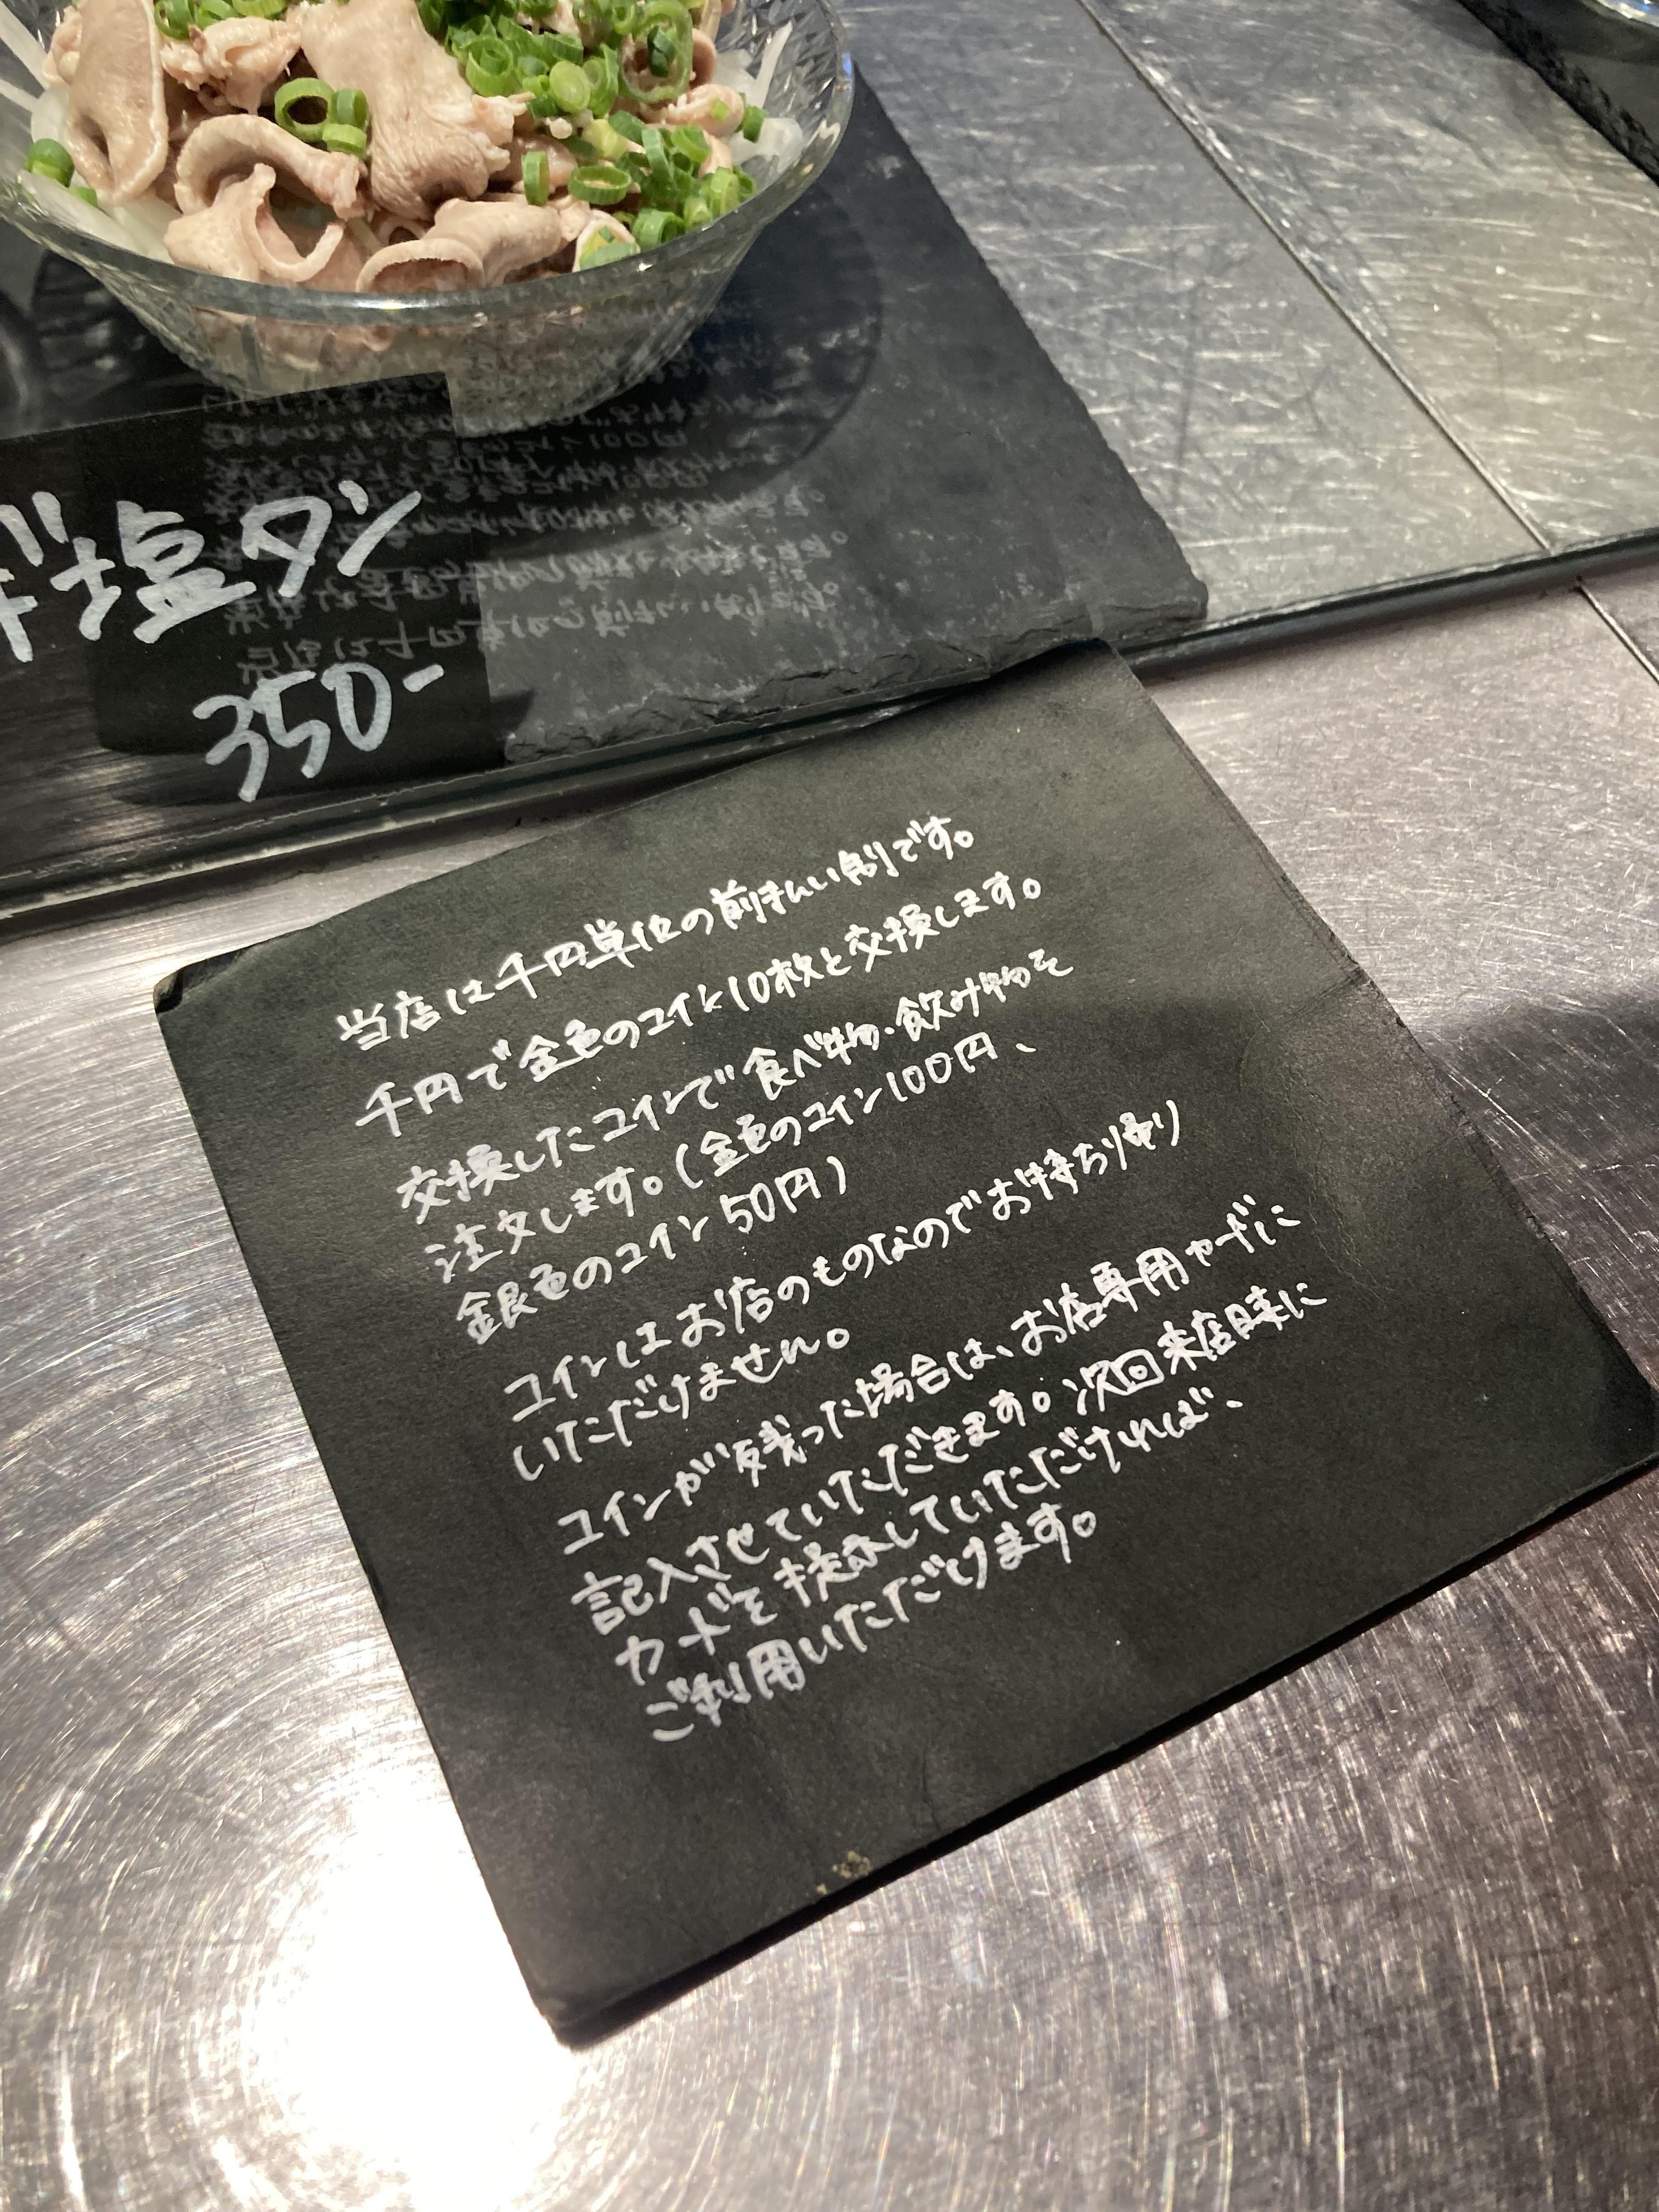 ギ塩タン
350-
当店は千円単位の前払い制です。
千円で金色のコイン10枚と交換します。
交換したコインで食べ物・飲み物を
注文します。(金色のコイン100円、
銀色のコイン50円)
コインはお店のものなのでお持ち帰り
いただけません。
コインが残った場合は、お店専用カードに
記入させていただきます。次回来店時に
カードを提示していただければ、
ご利用いただけます。